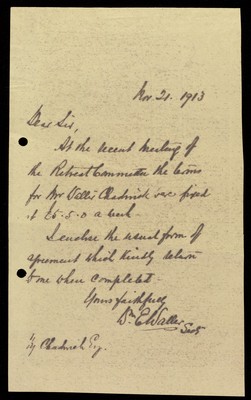 Nov. 21. 1913
Dear Sir,
At the recent meeting of
the Retreat Committee the terms
for Mr Wallis Chadwick were fixed
at £6-5-0 a week.
I enclose the usual form of
agreement which kindly return
to me when completed.
Yours faithfully
Wm E Waller
Chadwick Esq.